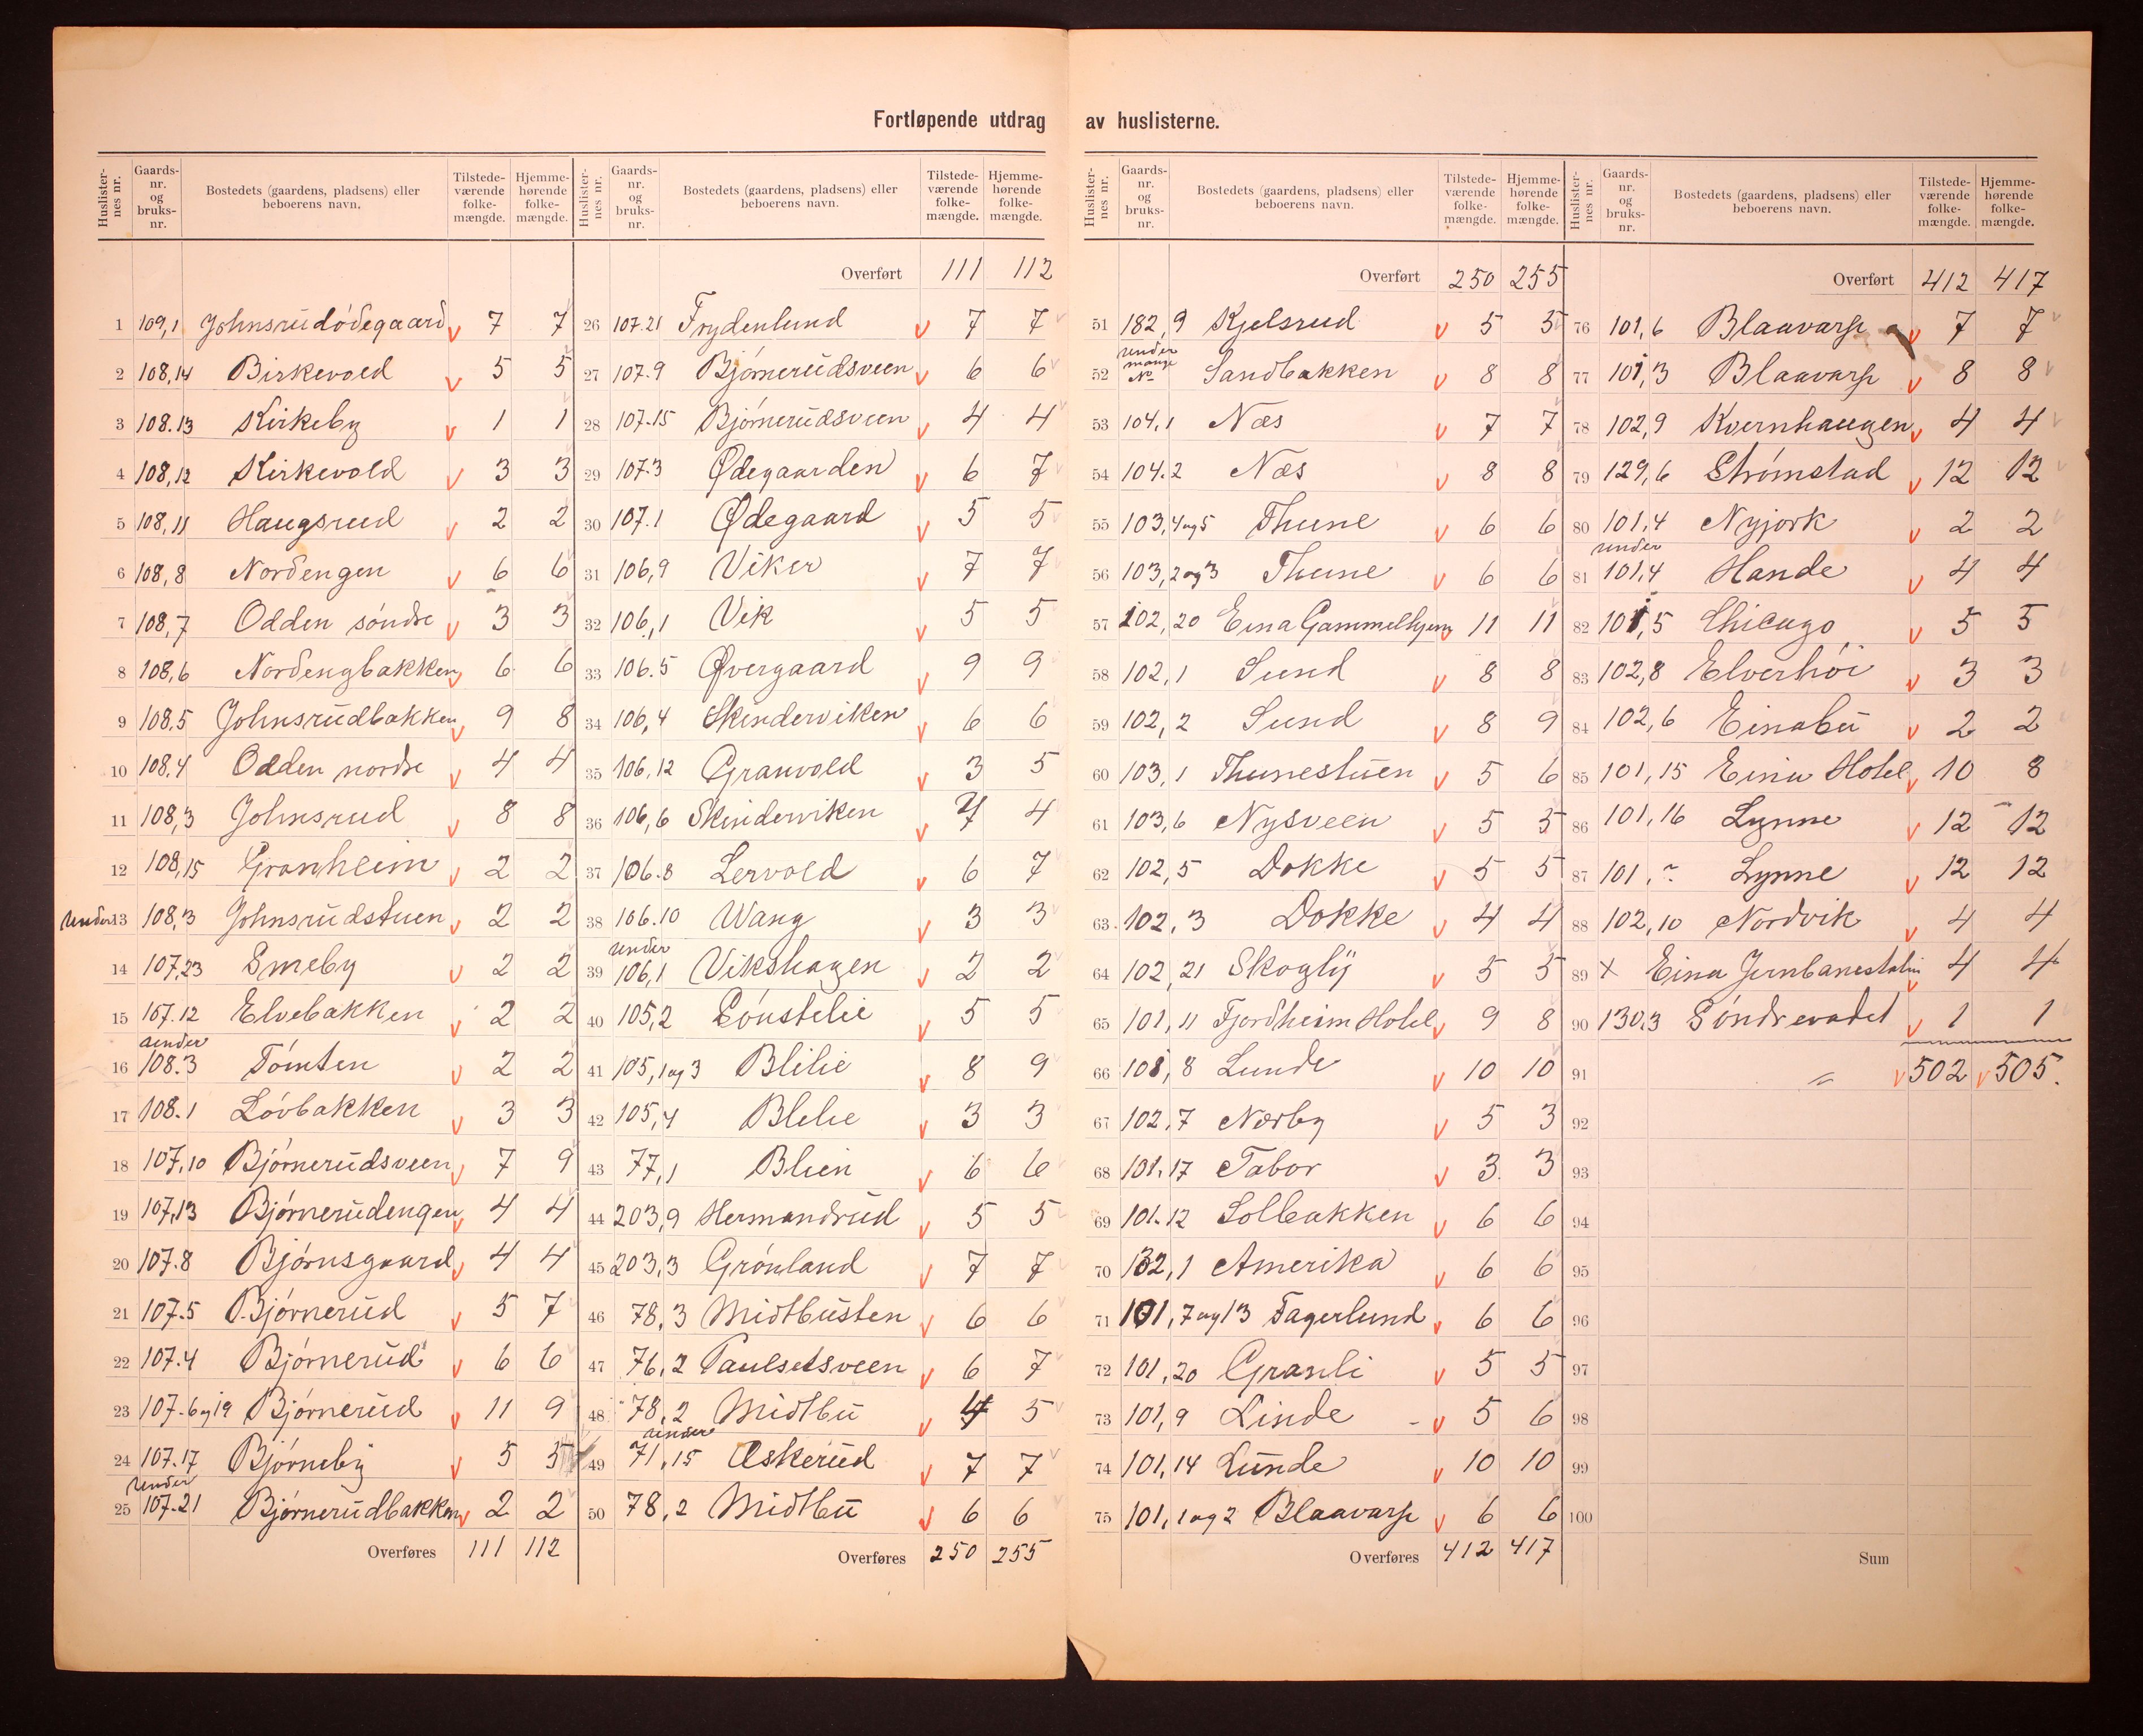 Fortløpende utdrag av huslisterne.
Huslister-nes nr. Gaards-nr. og bruks-nr. Bostedets (gaardens, pladsens) eller beboerens navn. Tilstede-værende folke-mængde. Hjemme-hørende folke-mængde.
1 109,1 Johnsrudødegaard 7 7
2 108,14 Birkevold 5 5
3 108.13 Kirkeby 1 1
4 108,12 Kirkevold 3 3
5 108,11 Haugsrud 2 2
6 108,8 Nordengen 6 6
7 108,7 Odden søndre 3 3
8 108,6 Nordengbakken 6 6
9 108.5 Johnsrudbakken 9 8
10 108.4 Odden nordre 4 4
11 108,3 Johnsrud 8 8
12 108,15 Granheim 2 2
under 13 108,3 Johnsrudstuen 2 2
14 107,23 Smeby 2 2
15 107.12 Elvebakken 2 2
16 under 108.3 Tømten 2 2
17 108.1 Løvbakken 3 3
18 107,10 Bjørnerudsveen 7 9
19 107,13 Bjørnerudengen 4 4
20 107.8 Bjørnsgaard 4 4
21 107.5 Bjørnerud 5 7
22 107.4 Bjørnerud 6 6
23 107.6 og 19 Bjørnerud 11 9
24 107.17 Bjørneby 5 5
25 under 107.21 Bjørnerudbakken 2 2
Overføres 111 112
Huslister-nes nr. Gaards-nr. og bruks-nr. Bostedets (gaardens, pladsens) eller beboerens navn. Tilstede-værende folke-mængde. Hjemme-hørende folke-mængde.
Overført 111 112
26 107.21 Frydenlund 7 7
27 107.9 Bjørnerudsveen 6 6
28 107.15 Bjørnerudsveen 4 4
29 107.3 Ødegaarden 6 7
30 107.1 Ødegaard 5 5
31 106,9 Viker 7 7
32 106,1 Vik 5 5
33 106.5 Øvergaard 9 9
34 106,4 Skinderviken 6 6
35 106,12 Granvold 3 5
36 106,6 Skinderviken 4
37 106.8 Lervold 6 7
38 106.10 Wang 3 3
39 under 106,1 Vikshagen 2 2
40 105,2 Sønstelie 5 5
41 105,1 og 3 Blilie 8 9
42 105,4 Blilie 3 3
43 77,1 Blien 6 6
44 203,9 Hermandrud 5 5
45 203,3 Grønland 7 7
46 78,3 Midtbusten 6 6
47 76,2 Paulsetsveen 6 7
48 78,2 Midtbu 4 5
49 under 71,15 Æskerud 7 7
50 78,2 Midtbu 6 6
Overføres 250 255
Huslister-nes nr. Gaards-nr. og bruks-nr. Bostedets (gaardens, pladsens) eller beboerens navn. Tilstede-værende folke-mængde. Hjemme-hørende folke-mængde.
Overført 250 255
51 182,9 Kjelsrud 5 5
52 under mange No Sandbakken 8 8
53 104,1 Næs 7 7
54 104.2 Næs 8 8
55 103,4 og 5 Thune 6 6
56 103,2 og 3 Thune 6 6
57 102,20 Eina Gammelhjem 11 11
58 102,1 Sund 8 8
59 102,2 Sund 8 9
60 103,1 Thunestuen 5 6
61 103,6 Nysveen 5 5
62 102,5 Dokke 5 5
63 102,3 Dokke 4 4
64 102,21 Skogly 5 5
65 101,11 Fjordheim Hotel 9 8
66 101,8 Lunde 10 10
67 102,7 Nørby 5 3
68 101.17 Tabor 3 3
69 101.12 Solbakken 6 6
70 132,1 Amerika 6 6
71 101,7 og 13 Fagerlund 6 6
72 101,20 Granli 5 5
73 101,9 Linde 5 6
74 101,14 Lunde 10 10
75 101,1 og 2 Blaavarp 6 6
Overføres 412 417
Huslister-nes nr. Gaards-nr. og bruks-nr. Bostedets (gaardens, pladsens) eller beboerens navn. Tilstede-værende folke-mængde. Hjemme-hørende folke-mængde.
Overført 412 417
76 101,6 Blaavarp 7 7
77 101,3 Blaavarp 8 8
78 102,9 Kvernhaugen 4 4
79 129,6 Strømstad 12 12
80 101,4 Nyjork 2 2
81 under 101,4 Hande 4 4
82 101,5 Chicago 5 5
83 102,8 Elverhøi 3 3
84 102,6 Einabu 2 2
85 101,15 Eina Hotel 10 8
86 101,16 Lynne 12 12
87 101,~ Lynne 12 12
88 102,10 Nordvik 4 4
89 x Eina Jernbanestation 4 4
90 130.3 Søndrevadet 1 1
91 = 502 505.
92
93
94
95
96
97
98
99
100
Sum